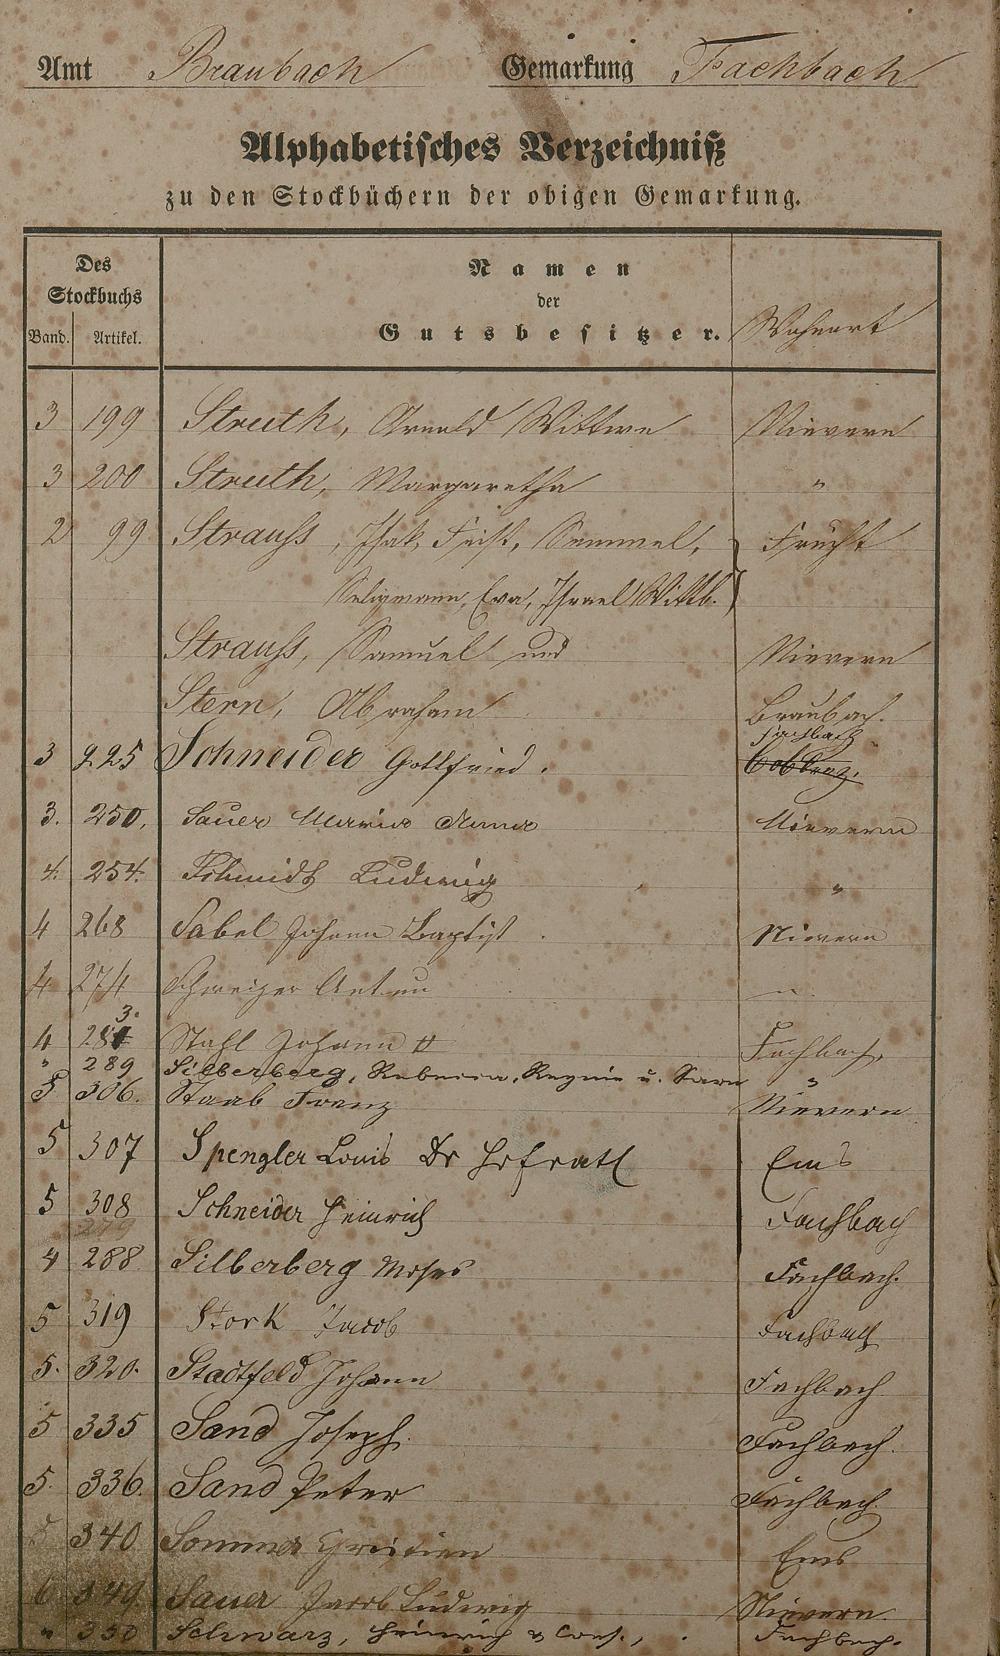 Amt Braubach Gemarkung Fachbach
Alphabetisches Verzeichniß
zu den Stockbüchern der obigen Gemarkung.
Des Stockbuchs
Band. Artikel.
Namen
der
Gutsbesitzer.
Wohnort
3 199 Struth, Arnold Wittwe Nievern
3 200 Struth, Margaretha "
2 99 Strauss, Isak, Feist, Semmel, Frücht
Seligmann, Eva, Israel Wittb.
Strauss, Samuel und Nievern
Stern, Abraham Braubach.
Fachbach
3 225 Schneider Gottfried. Coblenz.
3. 250. Sauer Maria Anna Nievern
4. 254. Schmidt Ludwig "
4 268 Sabel Johann Baptist Nievern
4 274 Schweizer Anton "
3.
4 281 Stahl Johann II Fachbach
" 289 Silberberg, Rebecca, Regine u. Sara "
5 306. Staab Franz Nievern
5 307 Spengler Louis Dr Hofrath Ems
5 308 Schneider Heinrich Fachbach
279
4 288 Silberberg Moses Fachbach.
5 319 Stork Jacob Fachbach
5. 320. Stadtfeld Johann Fachbach
5 335 Sand Joseph. Fachbach.
5. 336. Sand Peter Fachbach
5 340 Sommer Christian Ems
6 349. Sauer Jacob Ludwig Nievern
" 350 Schwarz, Heinrich & Cons., Fachbach.